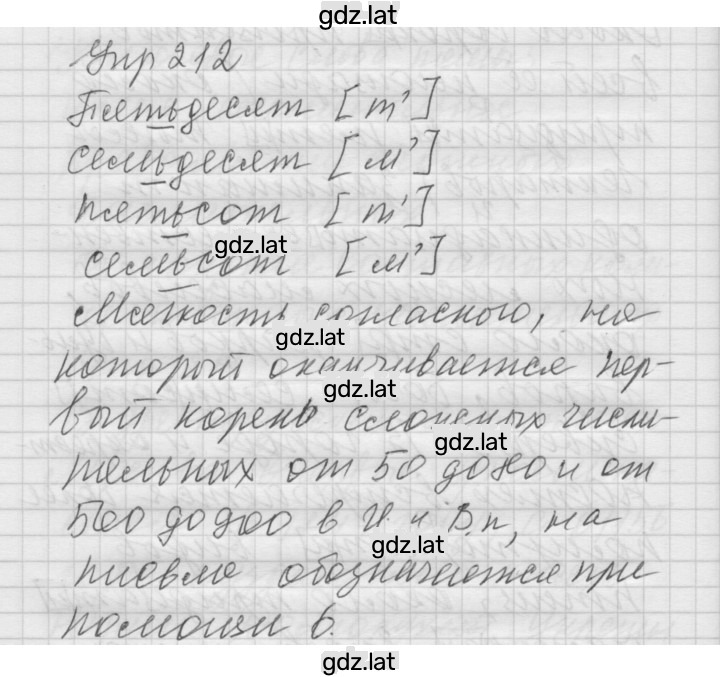 gdz.lat
Упр 212
Пятьдесят [т']
семьдесят [м']
пятьсот [т']
gdz.lat
семьсот [м']
Мягкость согласного, на
gdz.lat
который оканчивается пер-
gdz.lat
вый корень сложных числи-
gdz.lat
тельных от 50 до 80 и от
500 до 900 в И. и В.п, на
gdz.lat
письме обозначается при
помощи ь.
gdz.lat